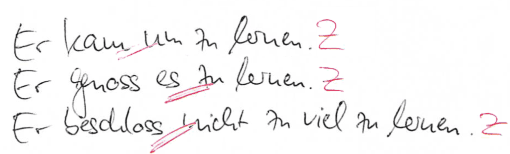 Er kam um zu lernen. Z
Er genoss es zu lernen. Z
Er beschloss nicht zu viel zu lernen. Z